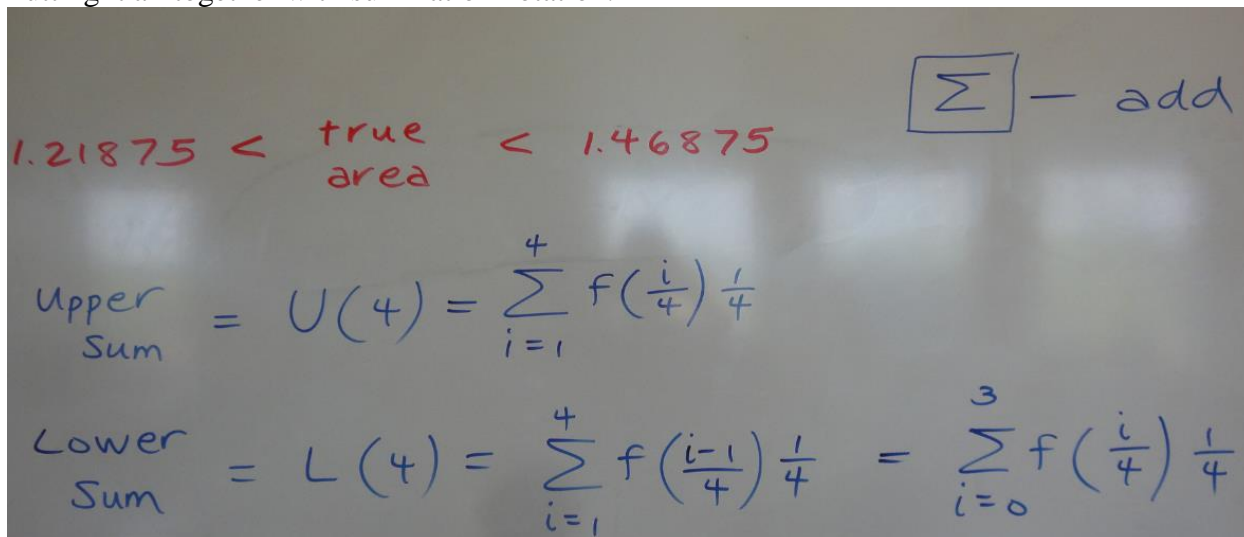 Σ — add
1.21875 < true area < 1.46875
Upper Sum = U(4) = \sum_{i=1}^{4} f(\frac{i}{4}) \frac{1}{4}
Lower Sum = L(4) = \sum_{i=1}^{4} f(\frac{i-1}{4}) \frac{1}{4} = \sum_{i=0}^{3} f(\frac{i}{4}) \frac{1}{4}